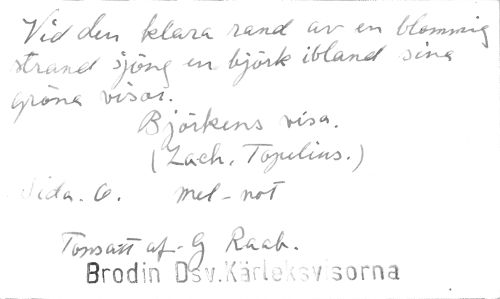 Vid den klara rand av en blommig
strand sjöng en björk ibland sina
gröna visor.
Björkens visa.
(Zach. Topelius.)
Sida. 6. mel-not
Tonsatt af. G Raab.
Brodin Dsv.Kärleksvisorna